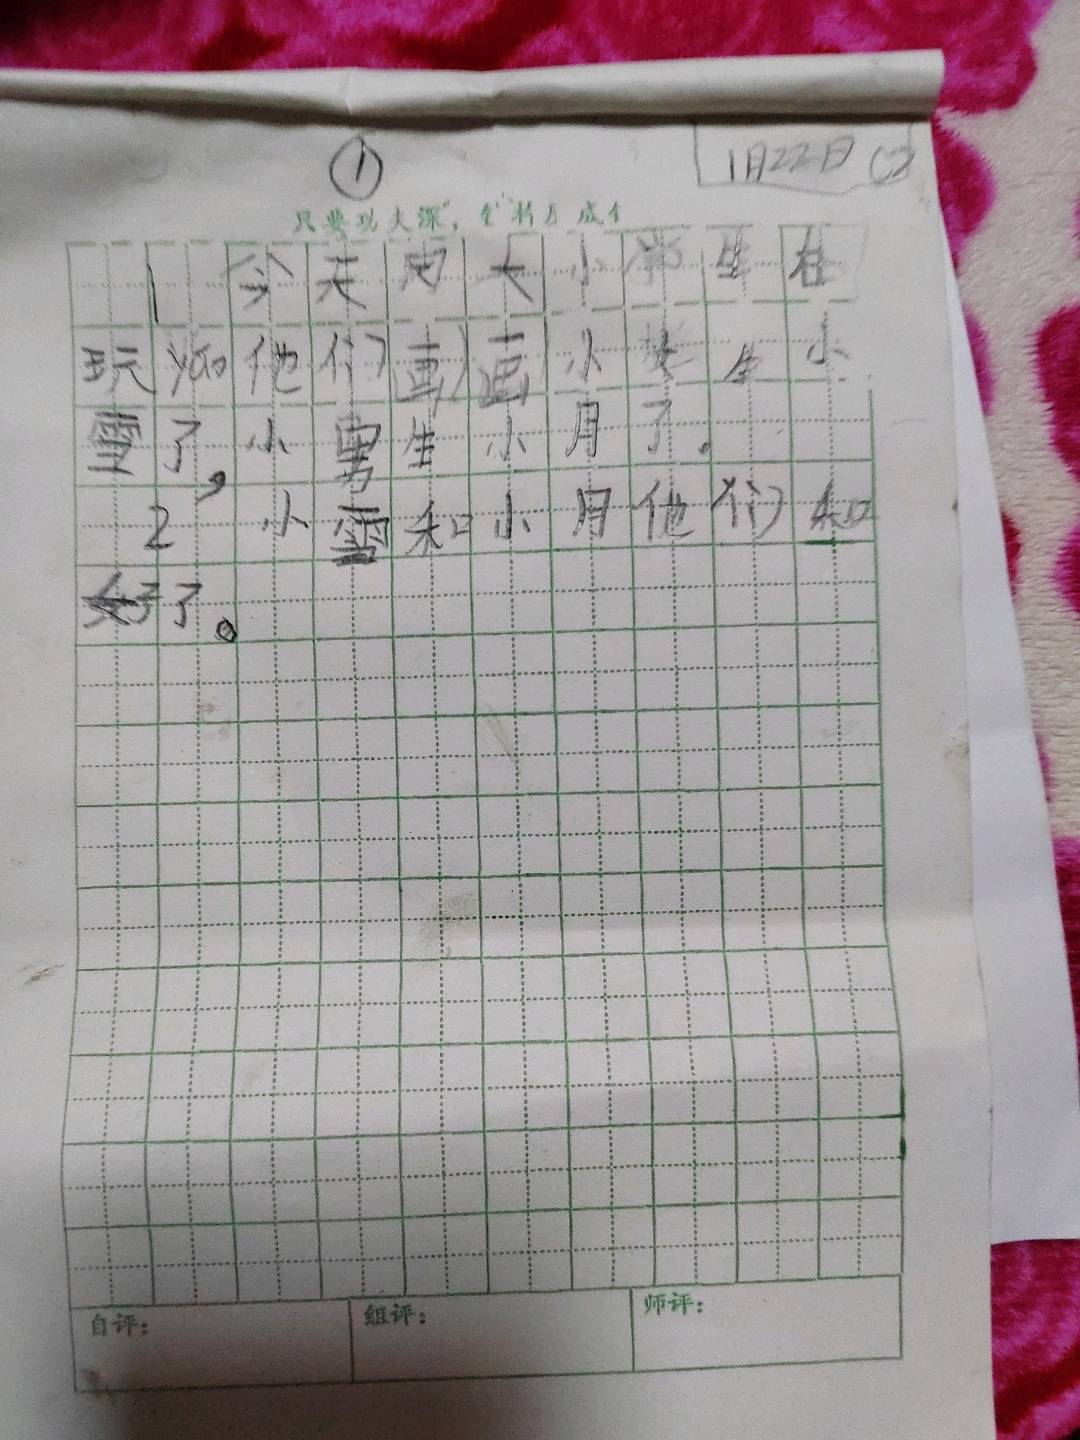 ①
1月22日
只要功夫深，
1 今天两大小学生在
玩 他们画画小女生小
雪了，小雪生小月了。
2 小雪和小月他们和
好了。
自评：
组评：
师评：